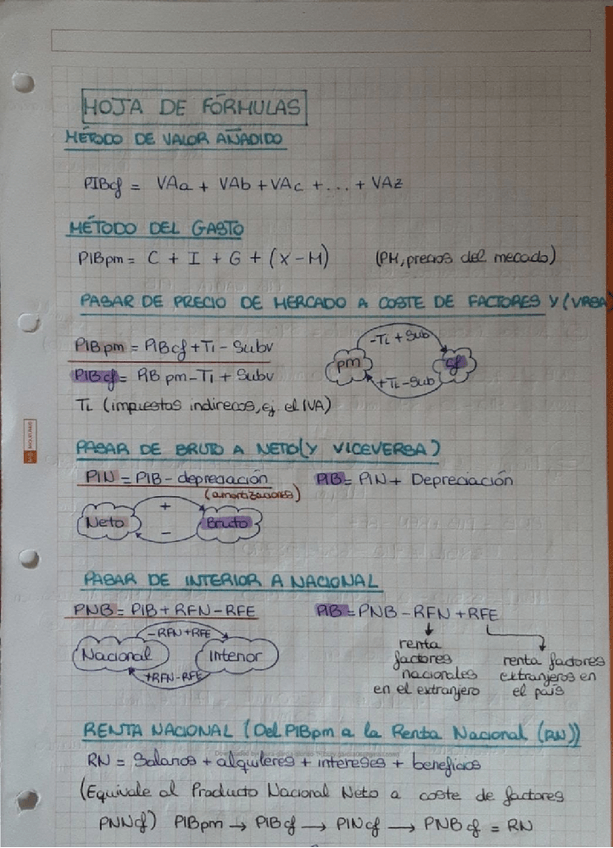 HOJA DE FÓRMULAS
MÉTODO DE VALOR AÑADIDO
PIBcf = VAa + VAb + VAc + ... + VAz
MÉTODO DEL GASTO
PIBpm = C + I + G + (X - M) (PM, precios del mecado)
PASAR DE PRECIO DE MERCADO A COSTE DE FACTORES Y (VRSA)
PIBpm = PIBcf + Ti - Subv
-Ti + Sub
pm cf
+Ti - Sub
PIBcf = PIBpm - Ti + Subv
Ti (impuestos indirecos, ej. el IVA)
PASAR DE BRUTO A NETO (Y VICEVERSA)
PIN = PIB - depreciación PIB = PIN + Depreciación
(amortizaciones)
+
Neto Bruto
-
PASAR DE INTERIOR A NACIONAL
PNB = PIB + RFN - RFE PIB = PNB - RFN + RFE
-RFN + RFE
Nacional Interior
+RFN - RFE
renta factores nacionales en el extranjero
renta factores extranjeros en el país
RENTA NACIONAL (Del PIBpm a la Renta Nacional (RN))
RN = Salarios + alquileres + intereses + beneficios
(Equivale al Producto Nacional Neto a coste de factores
PNNcf) PIBpm → PIBcf → PINcf → PNBcf = RN